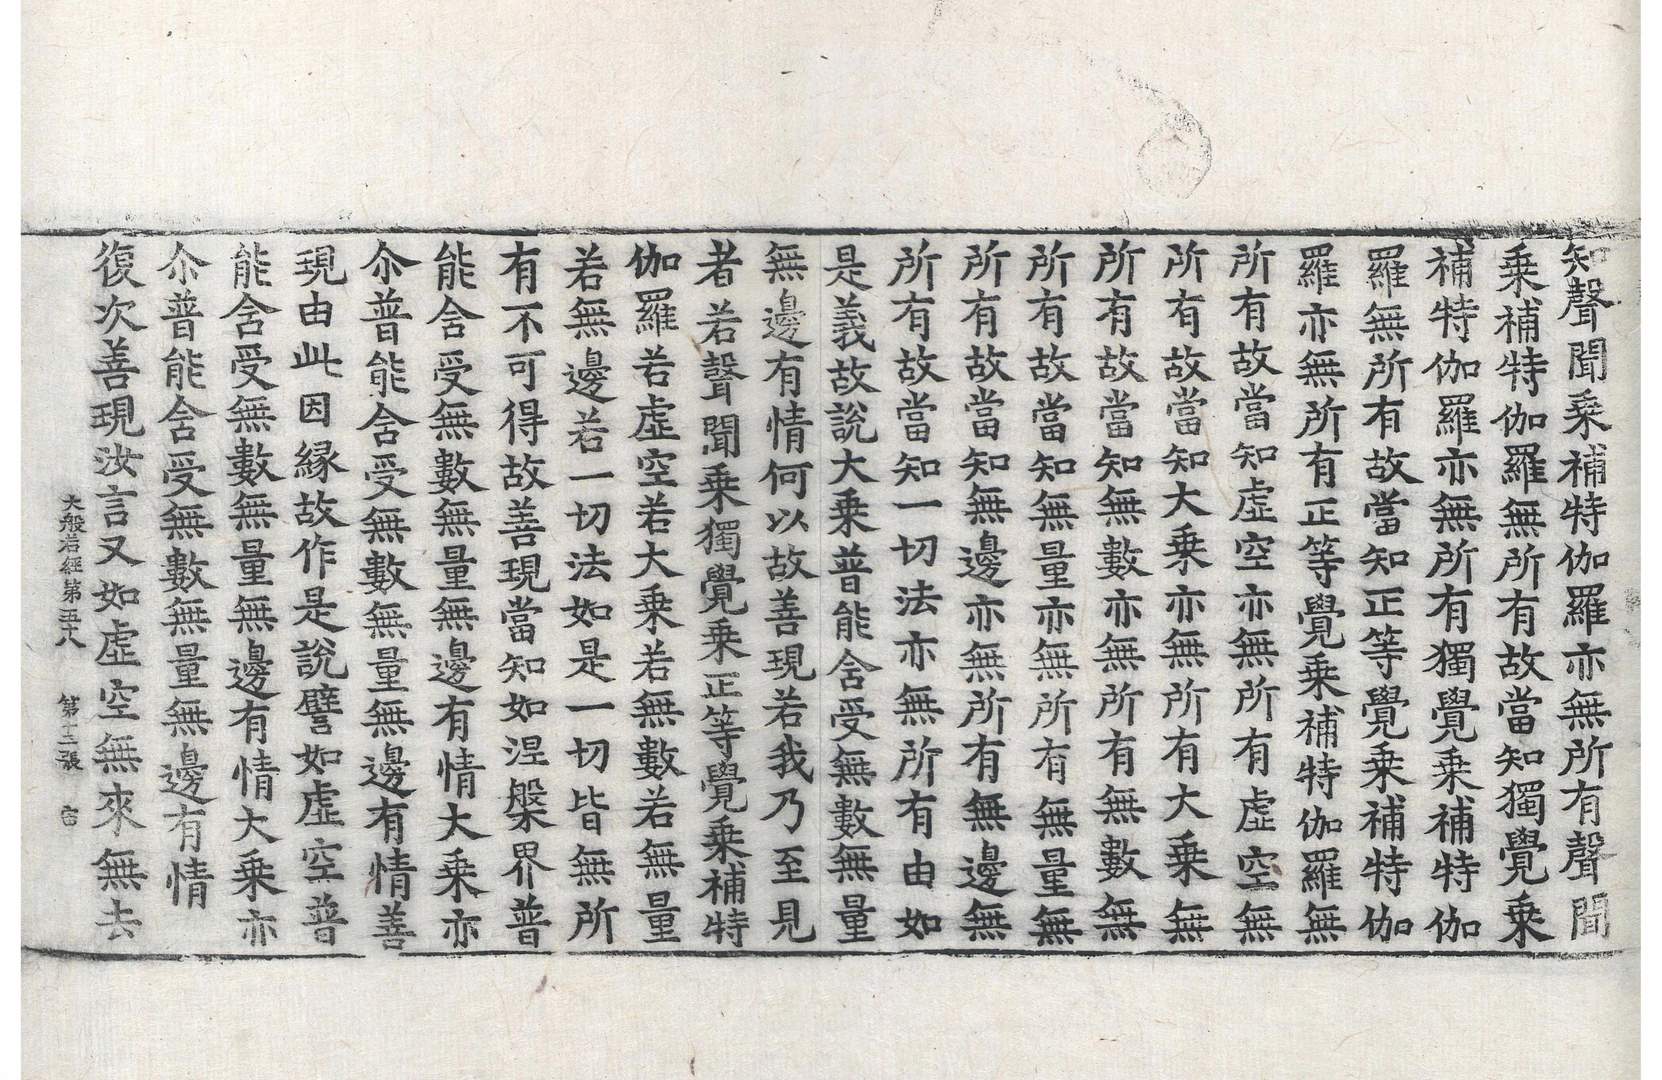 知聲聞乗補特伽羅亦無所有聲聞
乗補特伽羅無所有故當知獨覺乗
補特伽羅亦無所有獨覺乗補特伽
羅無所有故當知正等覺乗補特伽
羅亦無所有正等覺乗補特伽羅無
所有故當知虛空亦無所有虛空無
所有故當知大乗亦無所有大乗無
所有故當知無數亦無所有無數無
所有故當知無量亦無所有無量無
所有故當知無邊亦無所有無邊無
所有故當知一切法亦無所有由如
是義故說大乗普能含受無數無量
無邊有情何以故善現若我乃至見
者若聲聞乗獨覺乗正等覺乗補特
伽羅若虛空若大乗若無數若無量
若無邊若一切法如是一切皆無所
有不可得故善現當知如涅槃界普
能含受無數無量無邊有情大乗亦
尒普能含受無數無量無邊有情善
現由此因緣故作是說譬如虛空普
能含受無數無量無邊有情大乗亦
尒普能含受無數無量無邊有情
復次善現汝言又如虛空無來無去
大般若經第五十八 第十三張 宙